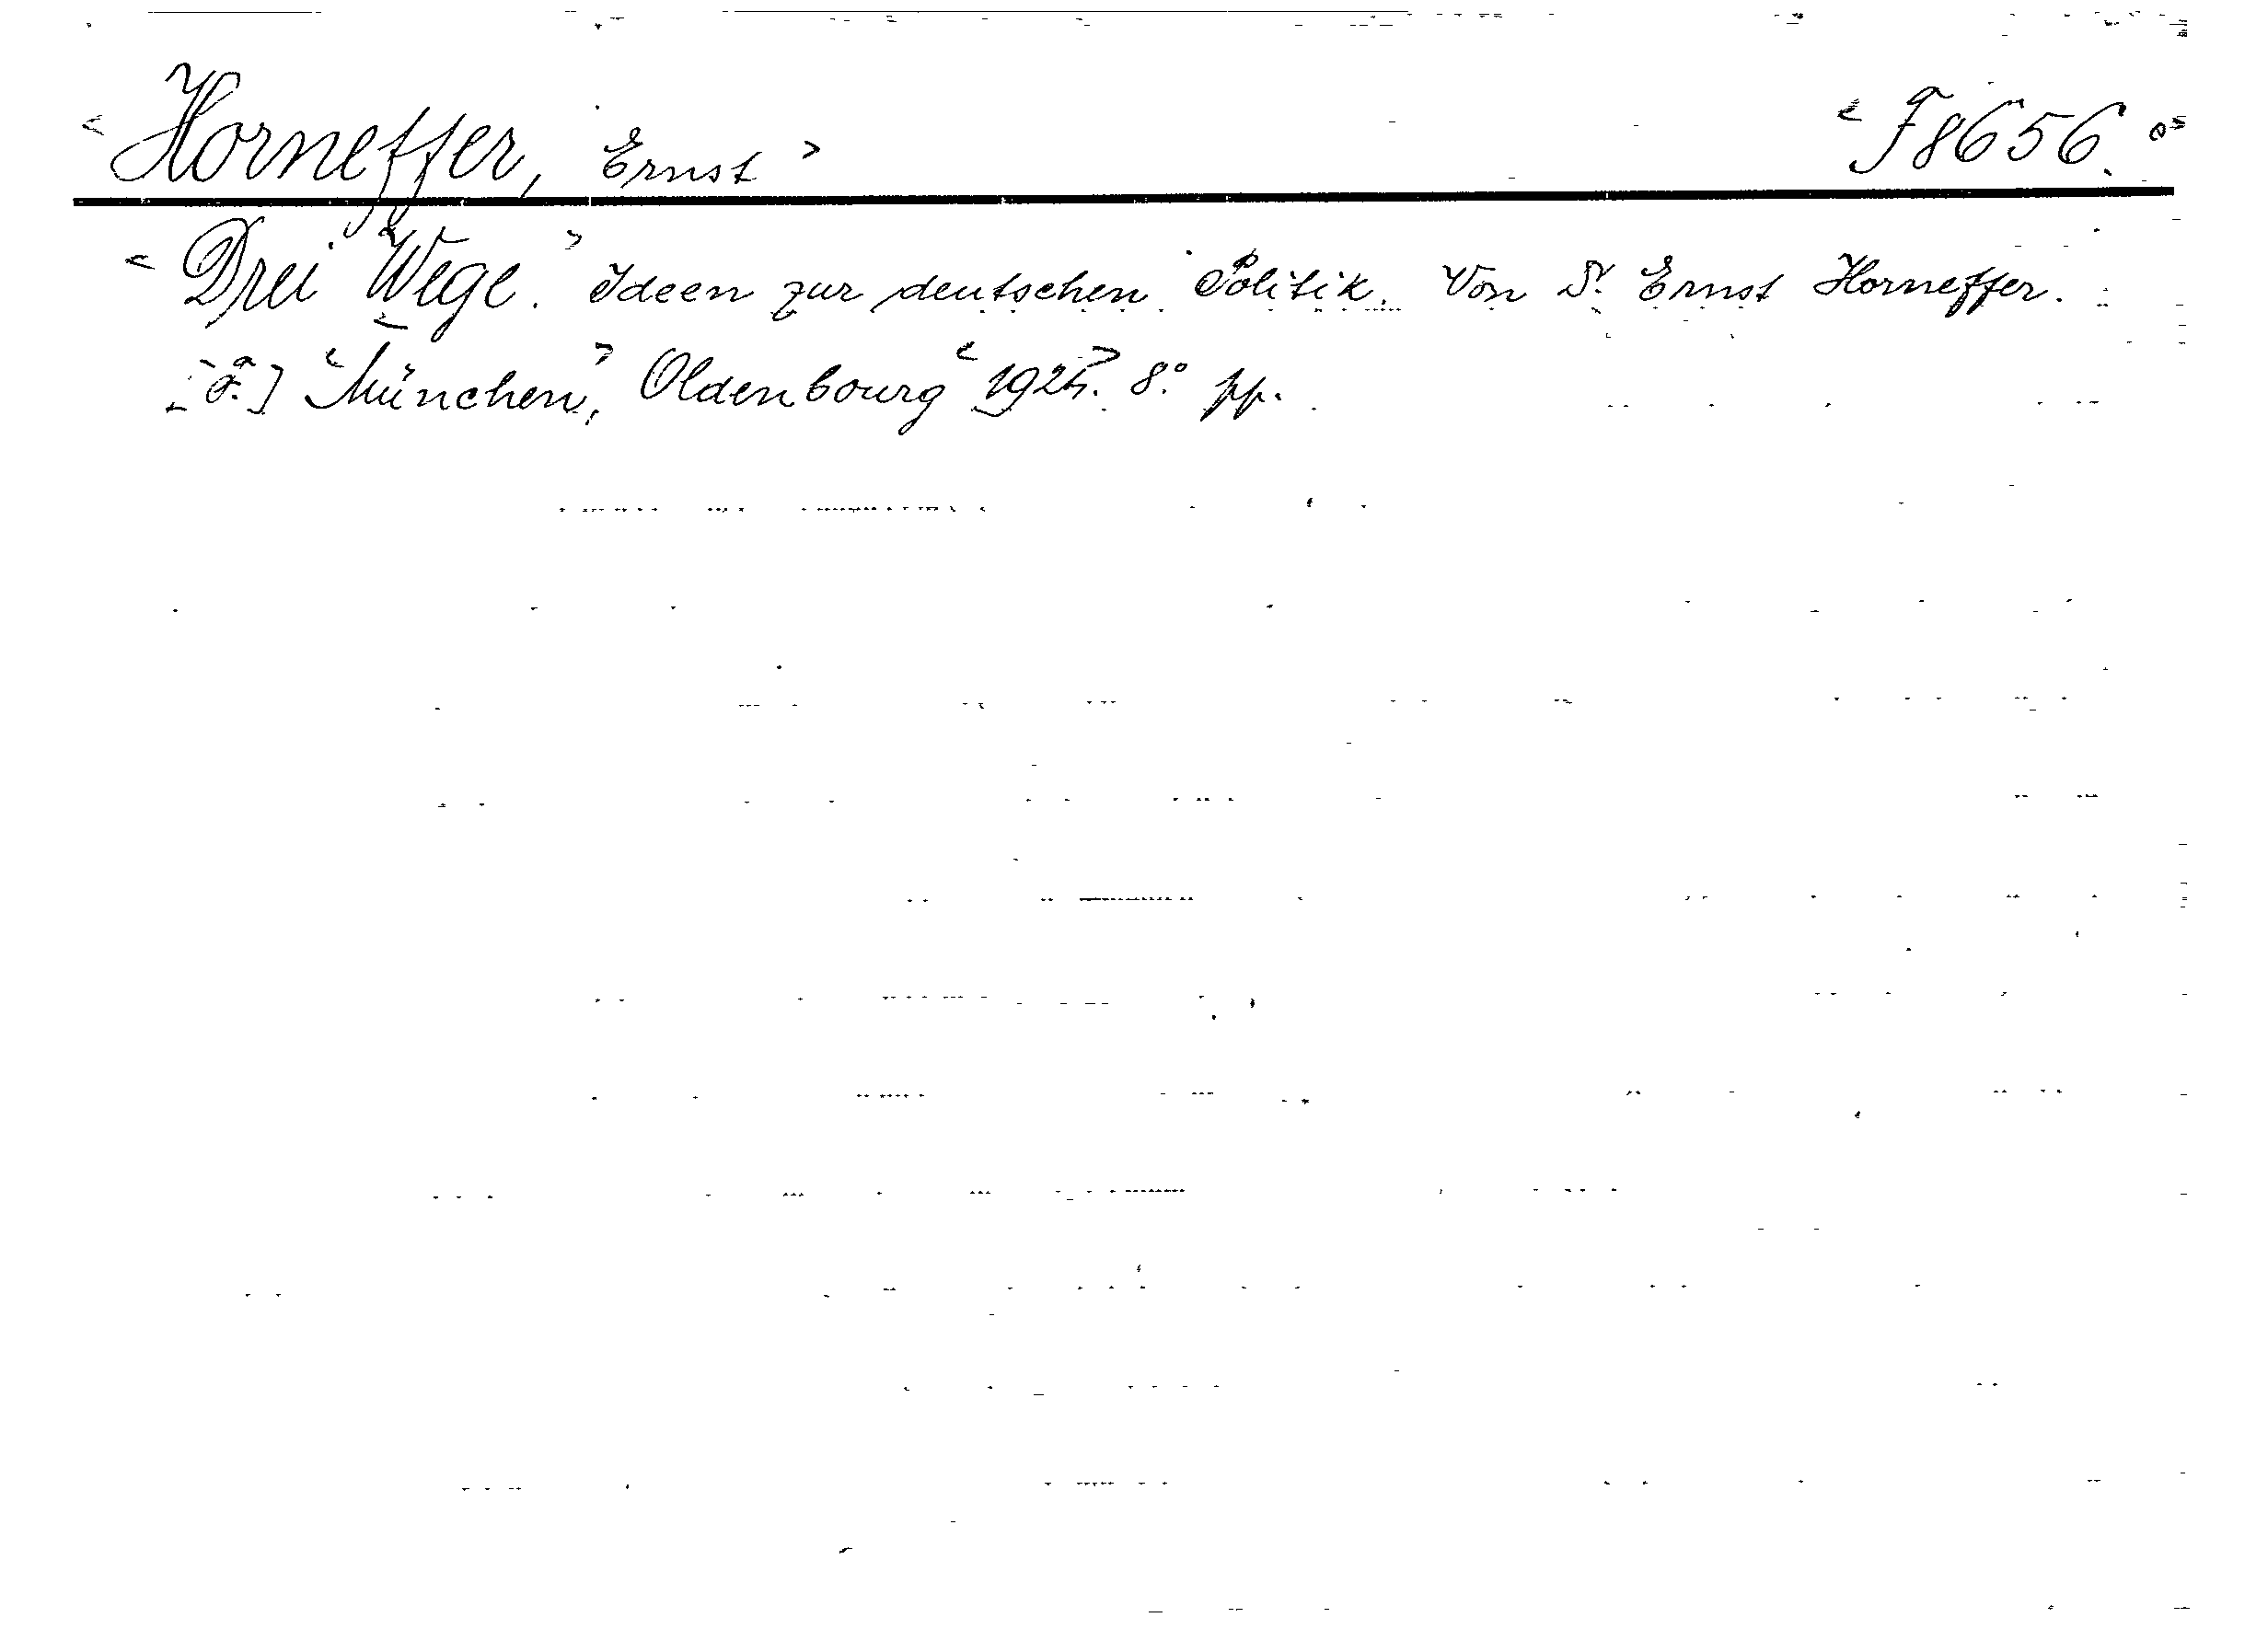 <Horneffer, Ernst> <F8656.°>
<Drei Wege.> Ideen zur deutschen Politik. Von Dr. Ernst Horneffer.
<München,> Oldenbourg <192 8° pp.